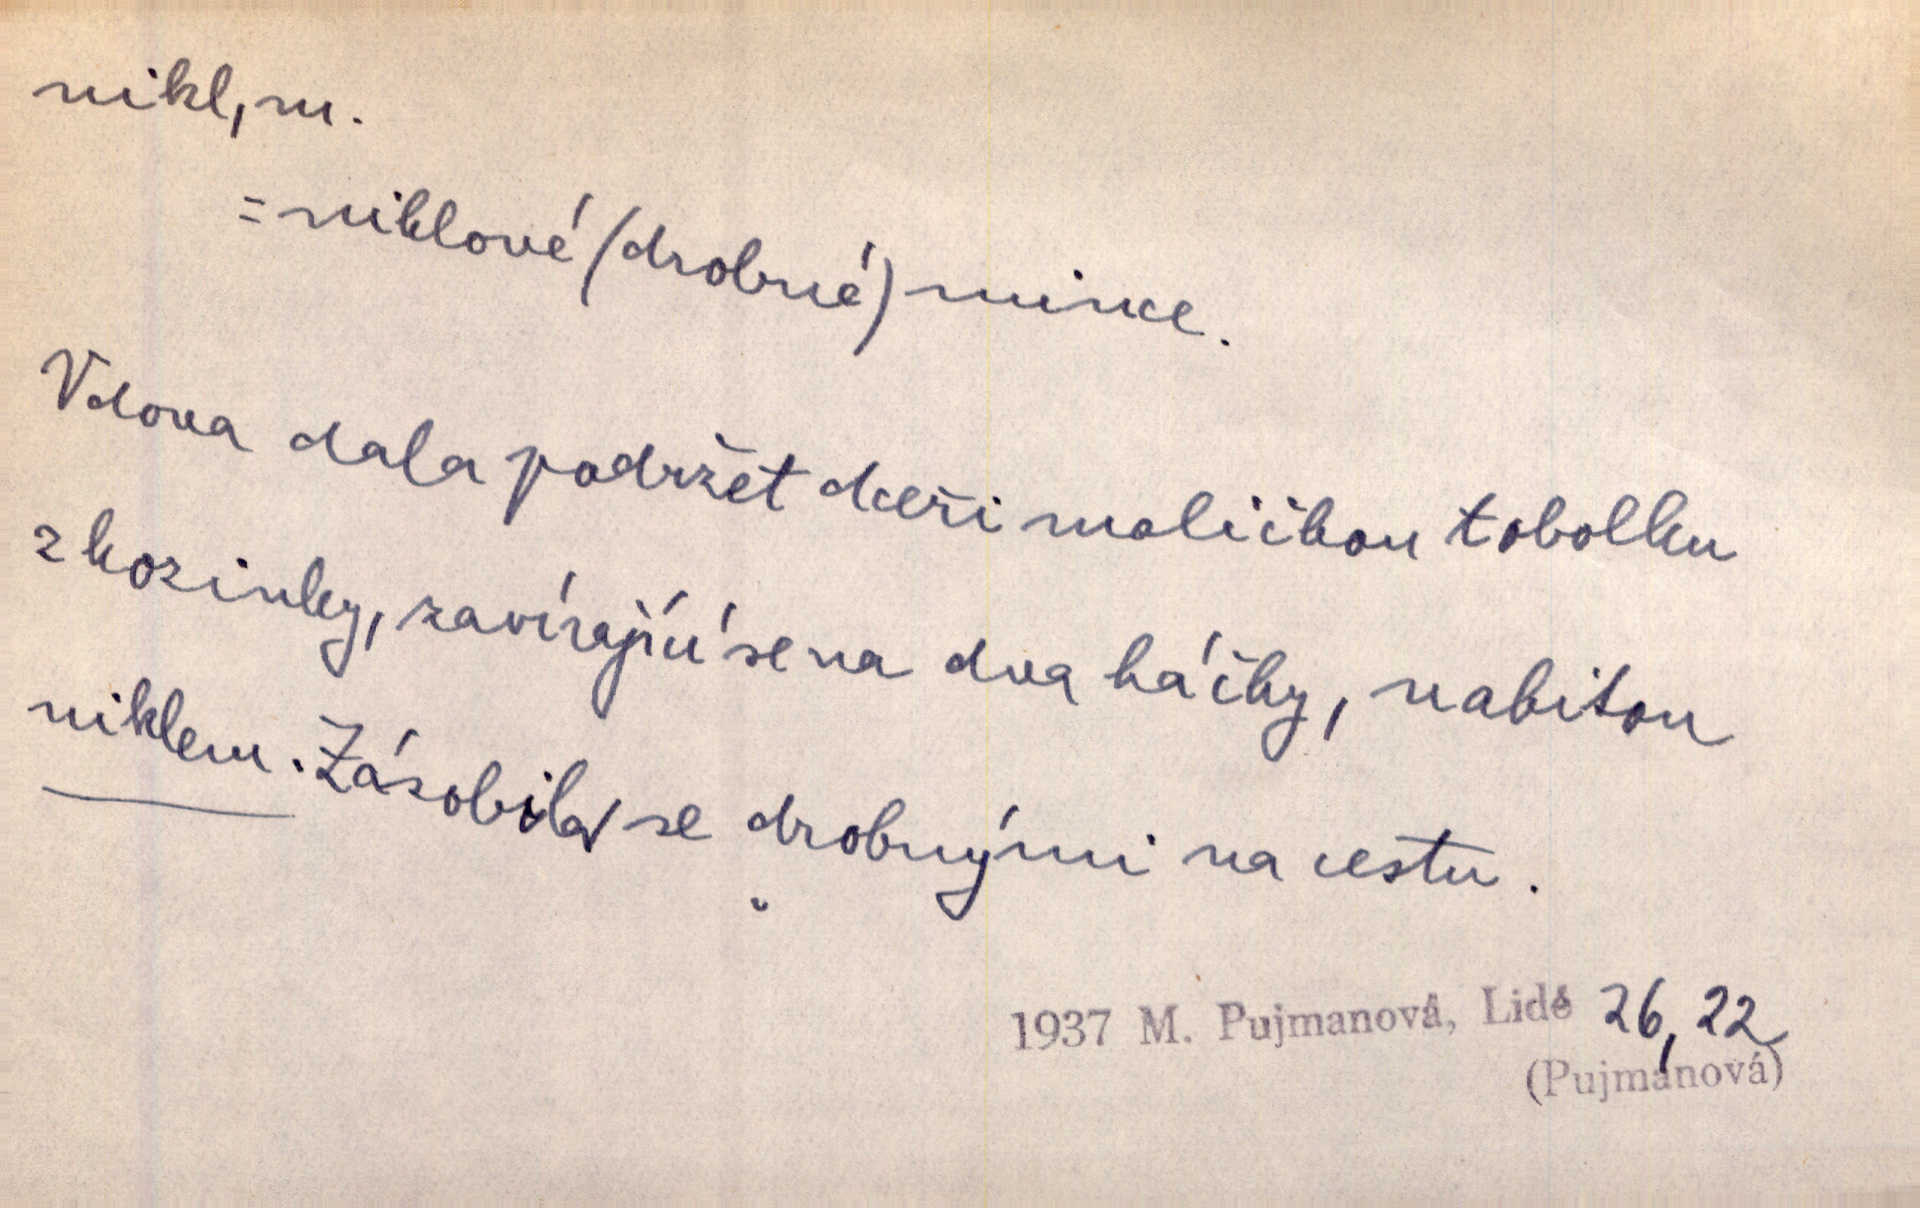 nikl, m.
= niklové (drobné) mince.
Vdova dala podržet dceři maličkou tobolku
z kozinky, zavírající se na dva háčky, nabitou
niklem. Zásobila se drobnými na cestu.
1937 M. Pujmanová, Lidé 26, 22
(Pujmanová)